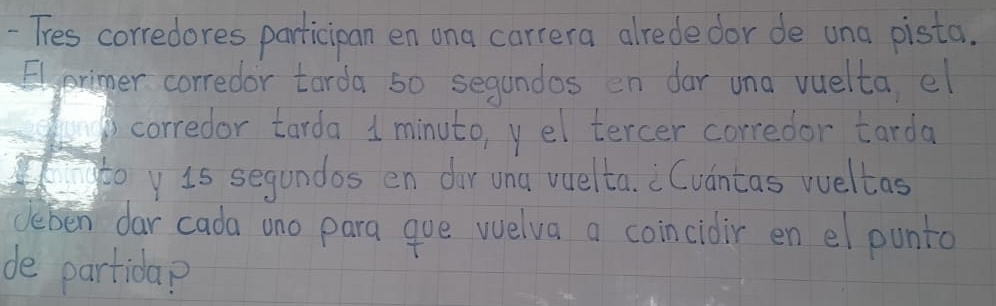 - Tres corredores participan en una carrera alrededor de una pista.
El primer corredor tarda 50 segundos en dar una vuelta, el
segundo corredor tarda 1 minuto, y el tercer corredor tarda
1 minuto y 15 segundos en dar una vuelta. ¿Cuántas vueltas
deben dar cada uno para que vuelva a coincidir en el punto
de partida?